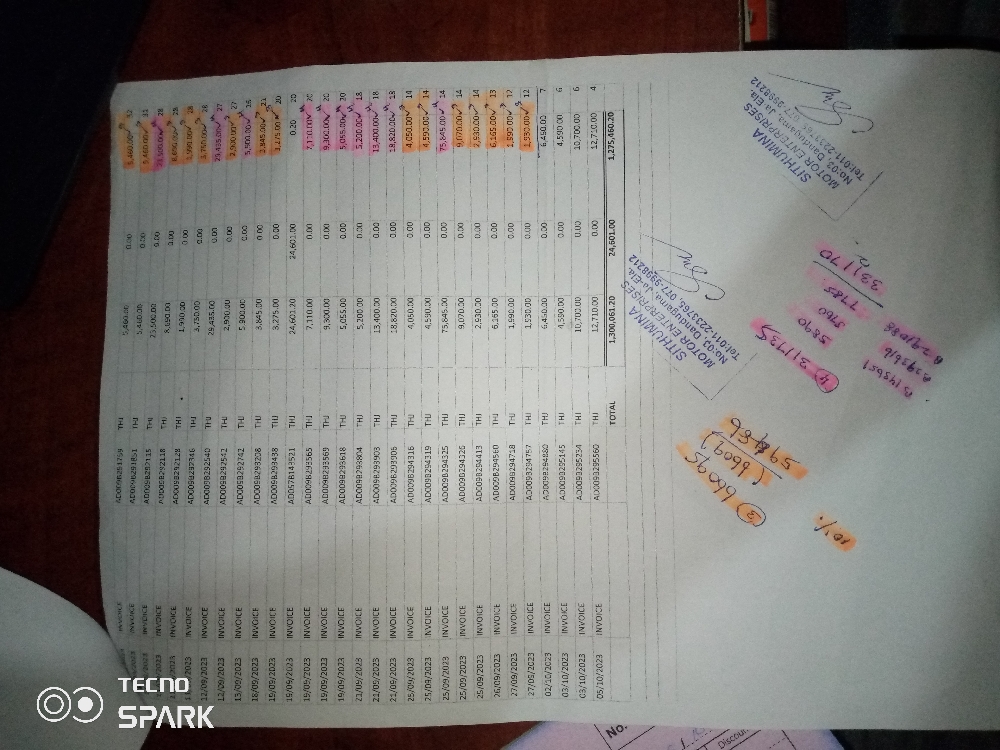 INVOICE AD009B291799 THJ 5,460.00 0.00 5,460.00 32
INVOICE AD009B291851 THJ 5,460.00 0.00 5,460.00 31
INVOICE AD009B292115 THJ 0.00 28
INVOICE AD009B292118 THJ 0.00 28
INVOICE AD009B292128 THJ 0.00 28
INVOICE AD009B292346 THJ 3,750.00 0.00 3,750.00 28
12/09/2023 INVOICE AD009B292540 THJ 29,435.00 0.00 29,435.00 27
12/09/2023 INVOICE AD009B292541 THJ 2,900.00 0.00 2,900.00 27
13/09/2023 INVOICE AD009B292742 THJ 5,900.00 0.00 5,900.00 26
18/09/2023 INVOICE AD009B293208 THJ 3,845.00 0.00 3,845.00 21
19/09/2023 INVOICE AD009B293438 THJ 3,275.00 0.00 3,275.00 20
19/09/2023 INVOICE AD057B143521 THJ 24,601.20 24,601.00 0.20 20
19/09/2023 INVOICE AD009B293565 THJ 7,110.00 0.00 7,110.00 20
19/09/2023 INVOICE AD009B293569 THJ 9,300.00 0.00 9,300.00 20
19/09/2023 INVOICE AD009B293618 THJ 5,055.00 0.00 5,055.00 20
21/09/2023 INVOICE AD009B293804 THJ 5,200.00 0.00 5,200.00 18
22/09/2023 INVOICE AD009B293903 THJ 13,400.00 0.00 13,400.00 18
21/09/2023 INVOICE AD009B293906 THJ 18,820.00 0.00 18,820.00 18
25/09/2023 INVOICE AD009B294316 THJ 4,050.00 0.00 4,050.00 14
25/09/2023 INVOICE AD009B294319 THJ 4,590.00 0.00 4,590.00 14
25/09/2023 INVOICE AD009B294325 THJ 75,645.00 0.00 75,645.00 14
25/09/2023 INVOICE AD009B294326 THJ 9,070.00 0.00 9,070.00 14
25/09/2023 INVOICE AD009B294413 THJ 2,930.00 0.00 2,930.00 14
26/09/2023 INVOICE AD009B294560 THJ 6,165.00 0.00 6,165.00 13
27/09/2023 INVOICE AD009B294718 THJ 1,590.00 0.00 1,590.00 12
27/09/2023 INVOICE AD009B294757 THJ 1,530.00 0.00 1,530.00 12
02/10/2023 INVOICE AD009B294680 THJ 6,450.00 0.00 6,450.00 7
03/10/2023 INVOICE AD009B295145 THJ 4,590.00 0.00 4,590.00 6
03/10/2023 INVOICE AD009B295234 THJ 10,700.00 0.00 10,700.00 6
05/10/2023 INVOICE AD009B295560 THJ 12,710.00 0.00 12,710.00 4
TOTAL 1,300,061.20 24,601.00 1,275,460.20
SITHUMINA
MOTOR ENTERPRISES
No:03, Dandugama, Ja-Ela.
Tel:011-2233768, 077-9998212
SITHUMINA
MOTOR ENTERPRISES
No:03, Dandugama, Ja-Ela.
Tel:011-2233768, 077-9998212
3) 66095
(6609)
59486
10%
4) 317735
5890
3760
7785
331170
No.
Discou
TECNO
SPARK